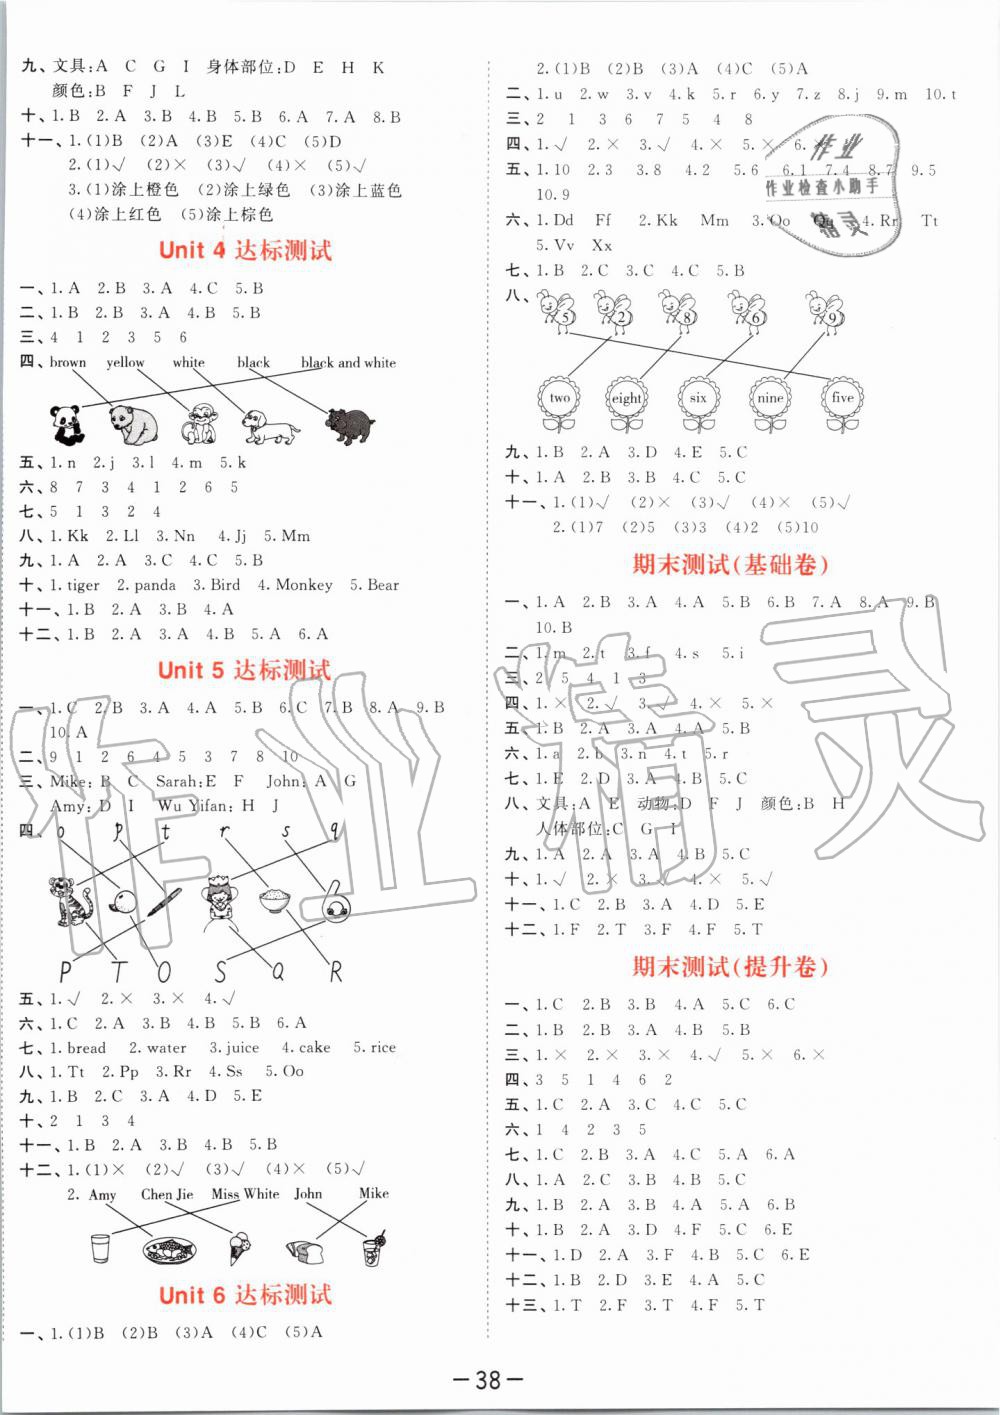 九、文具:A C G I 身体部位:D E H K
颜色:B F J L
十、1.B 2.A 3.B 4.B 5.B 6.A 7.A 8.B
十一、1.(1)B (2)A (3)E (4)C (5)D
2.(1)√ (2)× (3)√ (4)× (5)√
3.(1)涂上橙色 (2)涂上绿色 (3)涂上蓝色
(4)涂上红色 (5)涂上棕色
Unit 4 达标测试
一、1.A 2.B 3.A 4.C 5.B
二、1.B 2.B 3.A 4.B 5.B
三、4 1 2 3 5 6
四、brown yellow white black black and white
五、1.n 2.j 3.l 4.m 5.k
六、8 7 3 4 1 2 6 5
七、5 1 3 2 4
八、1.Kk 2.Ll 3.Nn 4.Jj 5.Mm
九、1.A 2.A 3.C 4.C 5.B
十、1.tiger 2.panda 3.Bird 4.Monkey 5.Bear
十一、1.B 2.A 3.B 4.A
十二、1.B 2.A 3.A 4.B 5.A 6.A
Unit 5 达标测试
一、1.C 2.B 3.A 4.A 5.B 6.C 7.B 8.A 9.B
10.A
二、9 1 2 6 4 5 3 7 8 10
三、Mike:B C Sarah:E F John:A G
Amy:D I Wu Yifan:H J
四、o p t r s q
P T O S Q R
五、1.√ 2.× 3.× 4.√
六、1.C 2.A 3.B 4.B 5.B 6.A
七、1.bread 2.water 3.juice 4.cake 5.rice
八、1.Tt 2.Pp 3.Rr 4.Ss 5.Oo
九、1.B 2.C 3.A 4.D 5.E
十、2 1 3 4
十一、1.B 2.A 3.B 4.B 5.B
十二、1.(1)× (2)√ (3)√ (4)× (5)√
2. Amy Chen Jie Miss White John Mike
Unit 6 达标测试
一、1.(1)B (2)B (3)A (4)C (5)A
2.(1)B (2)B (3)A (4)C (5)A
二、1.u 2.w 3.v 4.k 5.r 6.y 7.z 8.j 9.m 10.t
三、2 1 3 6 7 5 4 8
四、1.√ 2.× 3.√ 4.× 5.× 6.
五、1.10 2.3 3.8 4.2 5.6 6.1 7.4 8.7 9.5
10.9
六、1.Dd Ff 2.Kk Mm 3.Oo Qq 4.Rr Tt
5.Vv Xx
七、1.B 2.C 3.C 4.C 5.B
八、
5 2 8 6 9
two eight six nine five
九、1.B 2.A 3.D 4.E 5.C
十、1.A 2.B 3.B 4.C 5.C
十一、1.(1)√ (2)× (3)√ (4)× (5)√
2.(1)7 (2)5 (3)3 (4)2 (5)10
期末测试(基础卷)
一、1.A 2.B 3.A 4.A 5.B 6.B 7.A 8.A 9.B
10.B
二、1.m 2.t 3.f 4.s 5.i
三、2 5 4 1 3
四、1.× 2.√ 3.√ 4.× 5.×
五、1.B 2.A 3.A 4.A 5.B
六、1.a 2.b 3.n 4.t 5.r
七、1.E 2.D 3.A 4.B 5.C
八、文具:A E 动物:D F J 颜色:B H
人体部位:C G I
九、1.A 2.A 3.A 4.B 5.C
十、1.√ 2.× 3.× 4.× 5.√
十一、1.C 2.B 3.A 4.D 5.E
十二、1.F 2.T 3.F 4.F 5.T
期末测试(提升卷)
一、1.C 2.B 3.B 4.A 5.C 6.C
二、1.B 2.B 3.A 4.B 5.B
三、1.× 2.× 3.× 4.√ 5.× 6.×
四、3 5 1 4 6 2
五、1.C 2.A 3.C 4.C 5.C
六、1 4 2 3 5
七、1.C 2.B 3.B 4.C 5.A 6.A
八、1.A 2.C 3.B 4.B 5.C
九、1.B 2.A 3.B 4.A 5.A 6.B
十、1.B 2.A 3.D 4.F 5.C 6.E
十一、1.D 2.A 3.F 4.B 5.C 6.E
十二、1.B 2.D 3.E 4.A 5.C
十三、1.T 2.F 3.T 4.F 5.T
作业
作业检查小助手
精灵
作业精灵
— 38 —